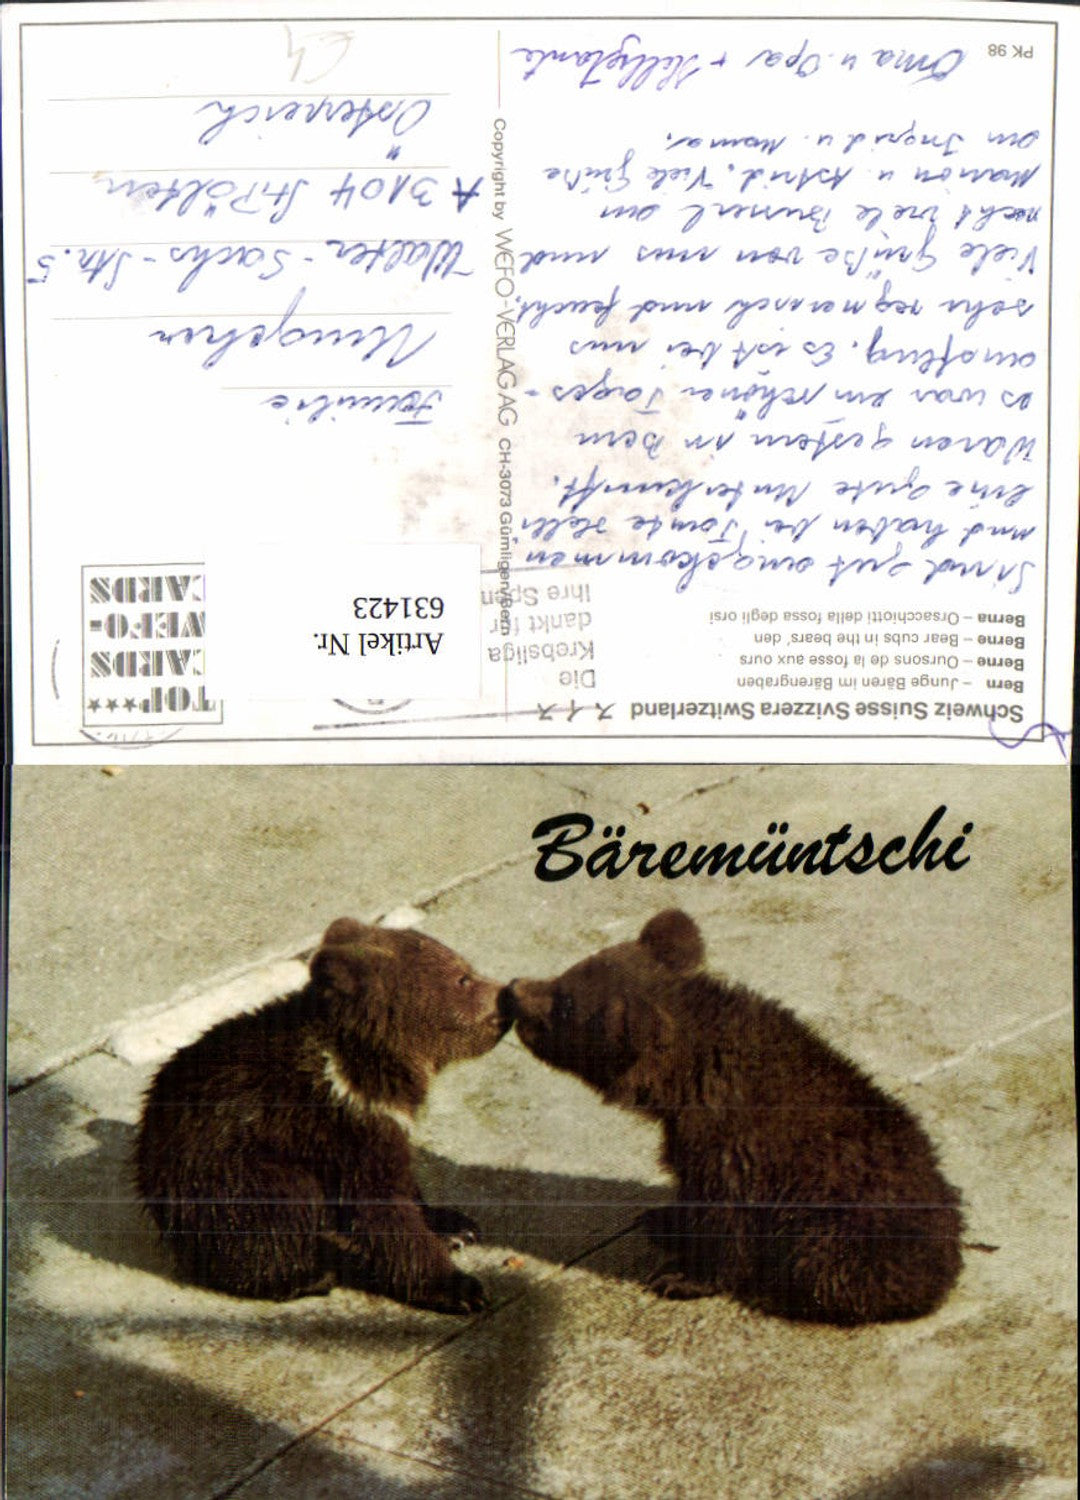 Schweiz Suisse Svizzera Switzerland スイス
Bern – Junge Bären im Bärengraben
Berne – Oursons de la fosse aux ours
Berne – Bear cubs in the bears' den
Berna – Orsacchiotti della fossa degli orsi
Sind gut angekommen
und haben bei Tante Helli
eine gute Unterkunft.
Waren gestern in Bern
es war ein schöner Tages-
ausflug. Es ist bei uns
sehr regnerisch und feucht.
Viele Grüße von uns und
recht viele Busserl an
Marion u. Astrid. Viele Grüße
an Ingrid u. Mama.
Oma u. Opa +
PK 98
Die
Krebsliga
dankt für
Ihre Spen
Copyright by WEFO-VERLAG AG CH-3073 Gümligen/Bern
TOP★★★★
CARDS
WEFO-
CARDS
Artikel Nr.
631423
Familie
Walter-Sachs-Str. 5
A 3104 St. Pölten
Österreich
Bäremüntschi